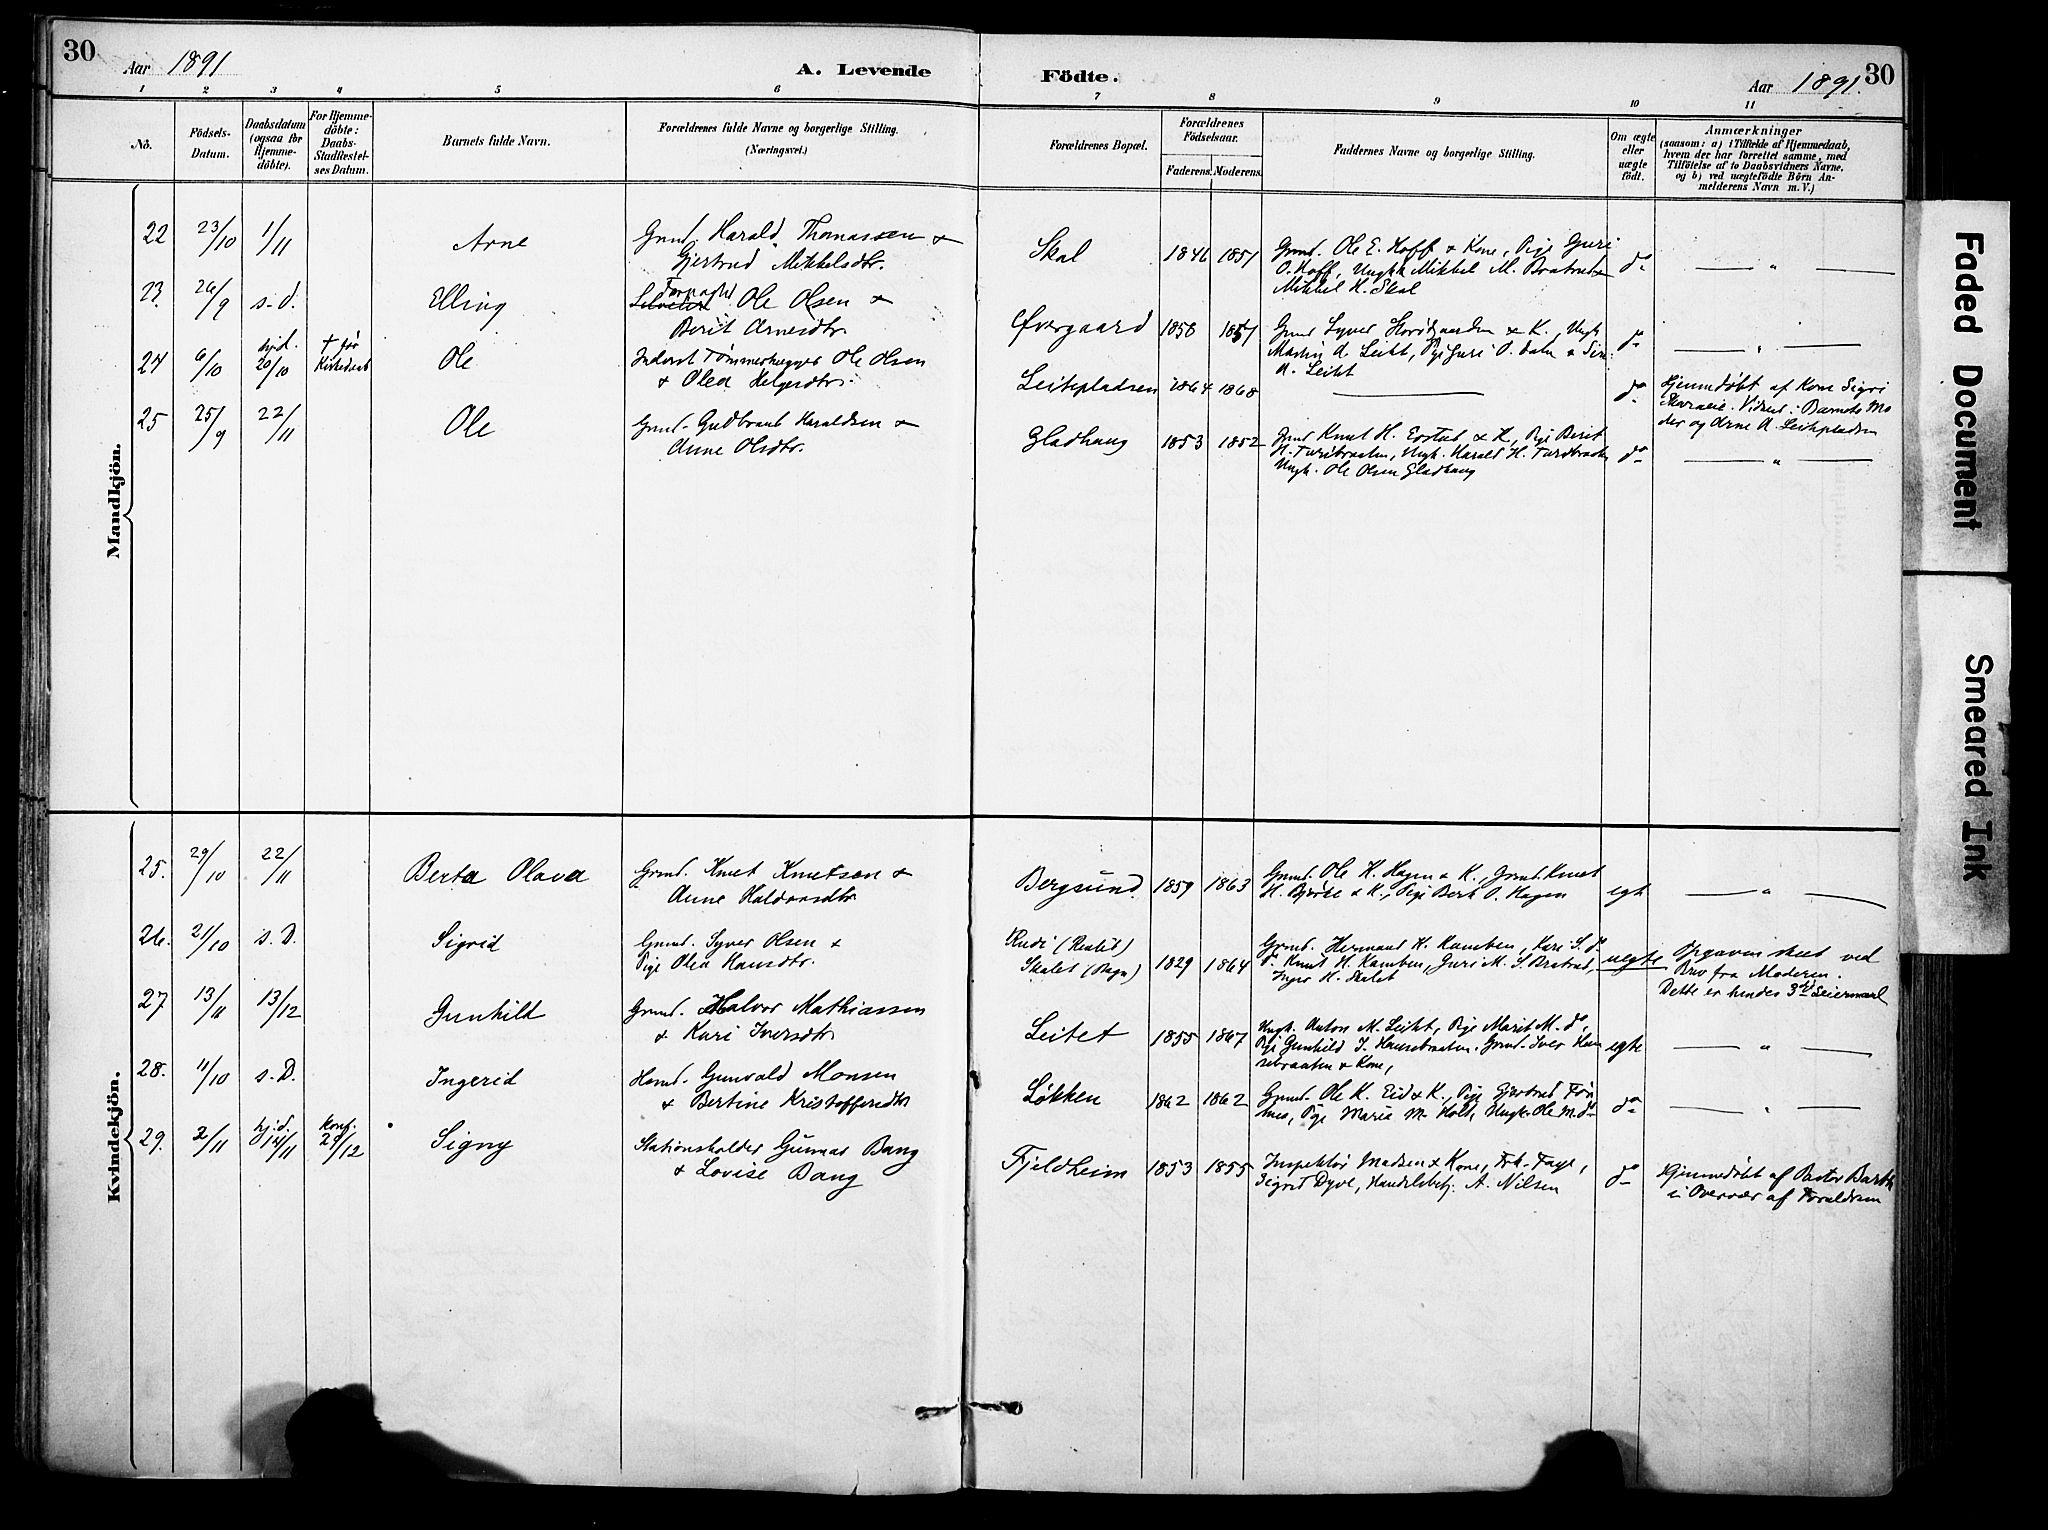 30
Aar 1891
A. Levende
Födte.
Aar 1891.
30
1 2 3 4 5 6 7 8 9 10 11
No.
Födsels-
Datum.
Daabsdatum
(ogsaa for
Hjemme-
döbte).
For Hjemme-
döbte:
Daabs-
Stadfæstel-
ses Datum.
Barnets fulde Navn.
Forældrenes fulde Navne og borgerlige Stilling.
(Næringsvei.)
Forældrenes Bopæl.
Forældrenes
Födselsaar.
Faderens. Moderens.
Faddernes Navne og borgerlige Stilling.
Om ægte
eller
uægte
födt.
Anmærkninger
(saasom: a) i Tilfælde af Hjemmedaab,
hvem der har forrettet samme, med
Tilföielse af to Daabsvidners Navne,
og b) ved uægtefödte Börn An-
melderens Navn m. V.)
Mandkjön.
22 23/10 1/11 Arne
Grmd. Harald Thomassen &
Gjertrud Mikkelsdtr.
Skal 1846 1851
Grmd. Ole E. Hoff & Kone, Pige Guri
O. Hoff, Ungk. Mikkel M. Bratrud &
Mikkel H. Skal
do
— " —
23. 26/9 s. d. Elling
Ole Olsen &
Berit Arnesdtr.
Øvergaard 1858 1857
Grmd Syver & K., Ungk
Martin A. Leitet, Pige Guri O. Dalen &
A. Leitet
do
— " —
24 6/10 hjd. 20/10 † før Kirkedaab Ole
Inderst Tømmerhugger Ole Olsen
& Olea Helgesdtr.
Leitepladsen 1864 1868
—
do
Hjemmedøbt af Kone Sigri
Vidner: Barnets Mo
der og Arne A. Leitepladsen
25 25/9 22/11 Ole
Grmd. Gudbrand Haraldsen &
Anne Olsdtr.
Gladhaug 1853 1852
Grmd Knut H. & K., Pige Berit
H. Turibraaten, Ungk. Harald H. Turibraaten
Ungk. Ole Olsen Gladhaug
do
— " —
Kvindekjön.
25. 29/10 22/11 Berta Olava
Grmd. Knut Knutsen &
Anne Haldorsdtr.
Bergsund. 1859 1863
Grmd. Ole K. Hagen & K., Grmd. Knut
H. Bjørke & K., Pige Berit O. Hagen
egte
— " —
26. 21/10 s. D. Sigrid
Grmd. Syver Olsen &
Pige Olea Hansdtr.
Rudi
Skalet (Bagn) 1829 1864
Grmd. Hermand H. Kamben, Kari S. do
do Knut H. Kamben, Guri M. S. Bratrud,
Inger H. Skalet
uegte
Opgaven sket ved
Brev fra Moderen.
Dette er hendes 3die Leiermaal
27 13/11 13/12 Gunhild
Grmd. Halvor Mathiassen
& Kari Iversdtr
Leitet 1855 1867
Ungk. Anton M. Leitet, Pige Marit M. do,
Pige Gunhild I. Hansebraaten. Grmd. Iver Han
sebraaten & Kone,
egte
— " —
28. 11/10 s. D. Ingerid
Gunvald Monsen
& Bertine Kristoffersdtr
Løkken 1862 1862
Grmd. Ole K. Eid & K., Pige Gjertrud Før
nes, Pige Marie M. Holt, Ungk. Ole M. do
do
— " —
29. 2/11 hj.d. 14/11 Konf. 29/12 Signy
Stationsholder Gunnar Bang
& Lovise Bang
Fjeldheim 1853 1855
Inspektør Madsen & Kone, Frk. Faye,
Sigrid Dyve, Handelsbetj. A. Nilsen
do
Hjemmedøbt af Pastor Barth
i Overvær af Foreldrene
Faded Document
Smeared Ink